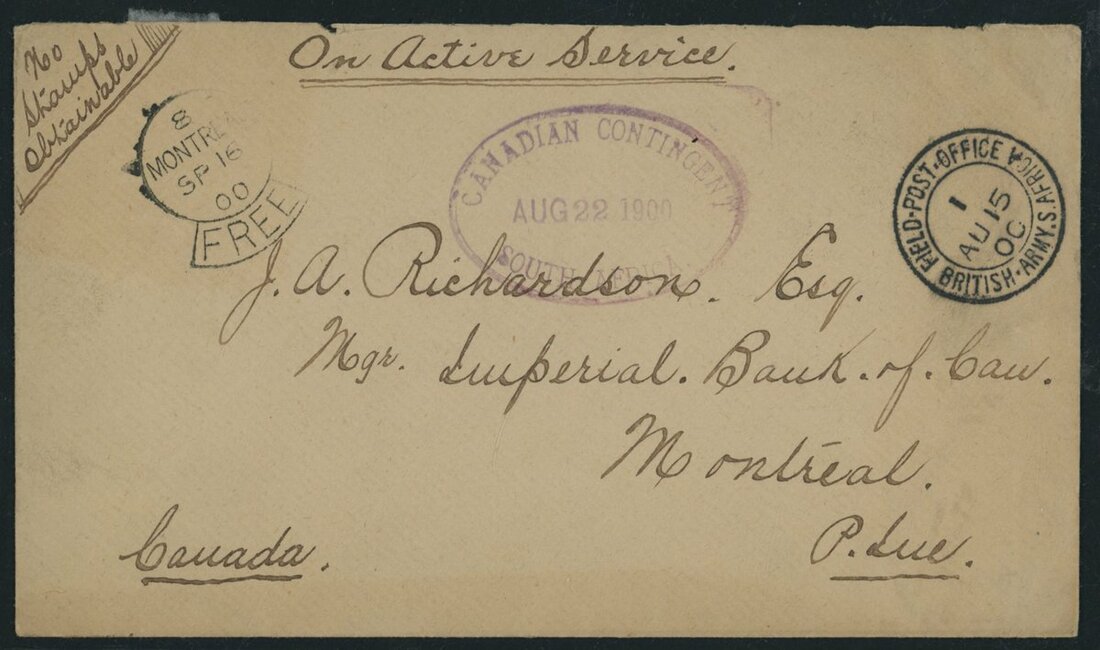 No
Stamps
Obtainable
On Active Service.
8
MONTREA
SP 16
00
FREE
CANADIAN CONTINGENT
AUG 22 1900
SOUTH AFRICA
FIELD-POST-OFFICE
BRITISH-ARMY.S.AFRICA
1
AU 15
00
J. A. Richardson. Esq.
Mgr. Imperial. Bank. of. Can.
Montréal.
Canada.
P.